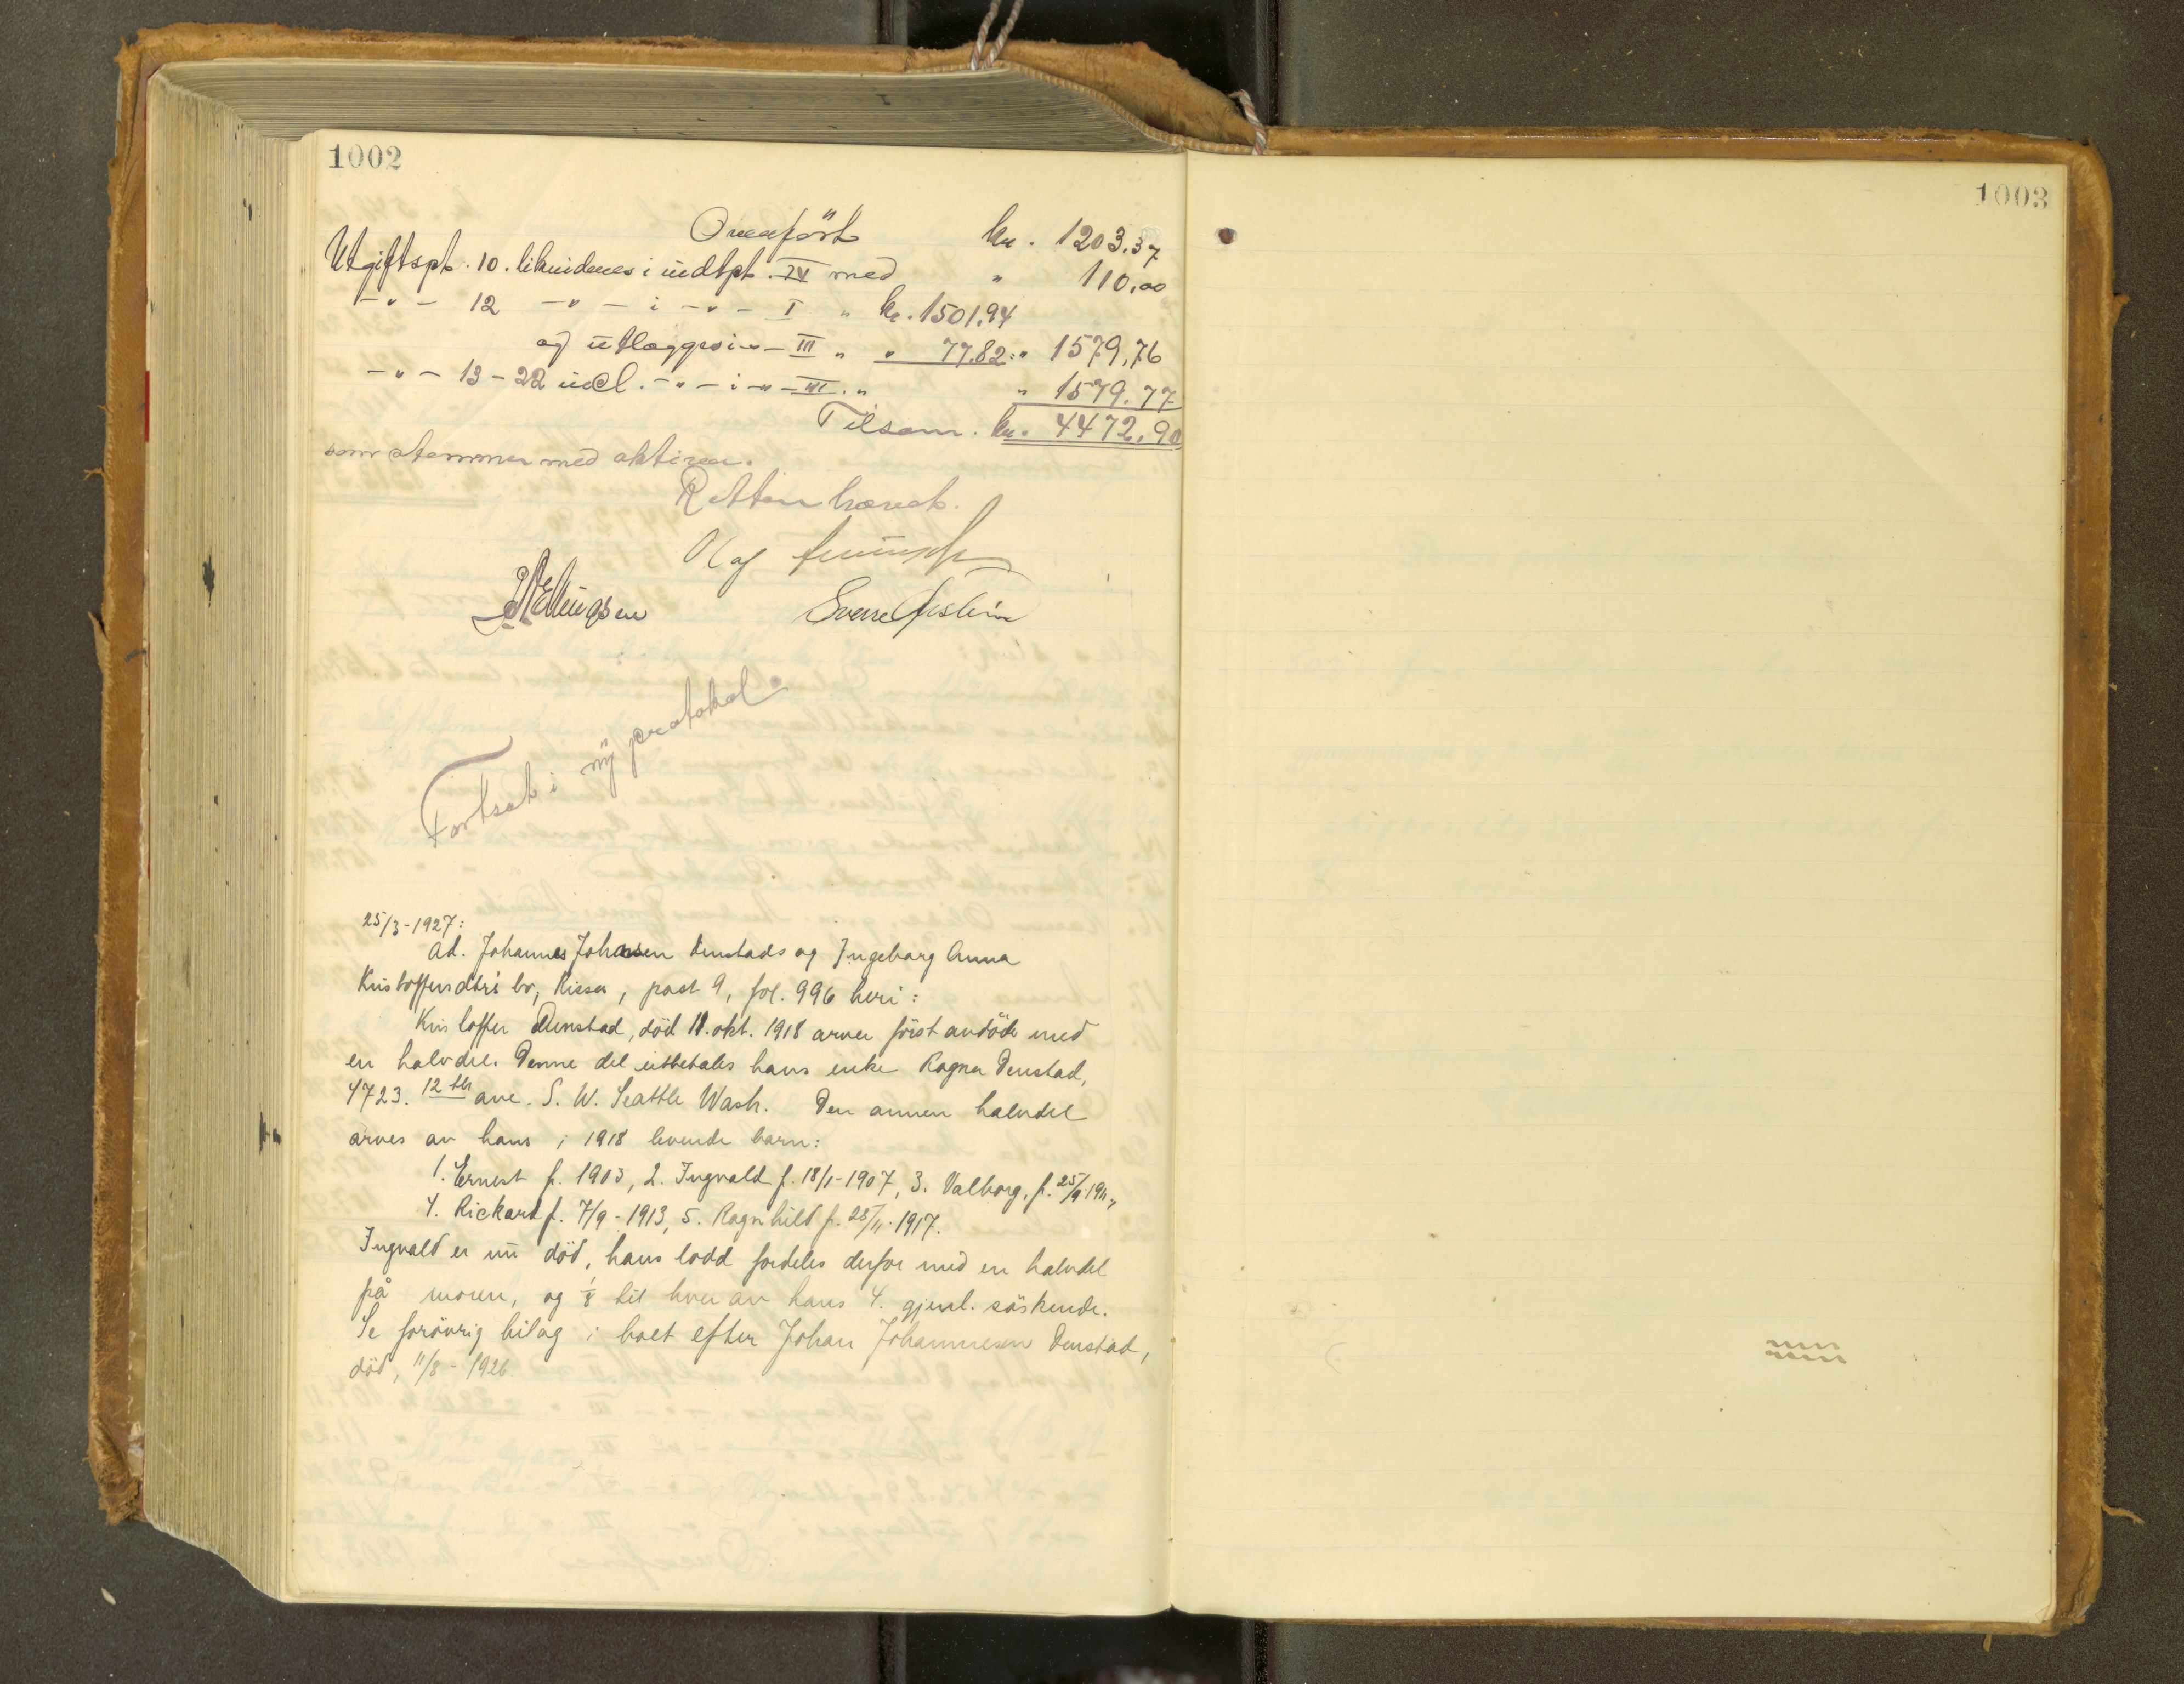 1002
Overført kr. 1203.37
Utgiftspt. 10. likvideres i indtpt. IV med " 110,00
-"- 12 -"- i -"- I " kr. 1501,94
og utlægges i -"- III " " 77.82: " 1579,76
-"- 13-22 incl. -"- i -"- III. " " 1579.77
Tilsam. kr. 4472,90
som stemmer med aktiven.
Retten hævet.
Olaf
Ellingsen Sverre
Fortsat i ny protokol
25/3-1927:
Ad. Johannes Johansen Denstads og Ingeborg Anna
Kristoffersdtrs bo, Rissa, post 9, fol. 996 heri:
Kristoffer Denstad, död 11. okt. 1918 arver först avdöde med
en halvdel. Denne del utbetales hans enke Ragna Denstad,
4723. 12th ave. S. W. Seattle Wash. Den annen halvdel
arves av hans i 1918 levende barn:
1. Ernest f. 1905, 2. Ingvald f. 18/1-1907, 3. Valborg, f. 25/9-1911,
4. Rickard f. 7/9-1913, 5. Ragnhild f. 25/11-1917.
Ingvald er nu död, hans lodd fordeles derfor med en halvdel
på moren, og 1/8 til hver av hans 4. gjenl. söskende.
Se forövrig bilag i boet efter Johan Johannesen Denstad,
död, 11/8-1926
1003